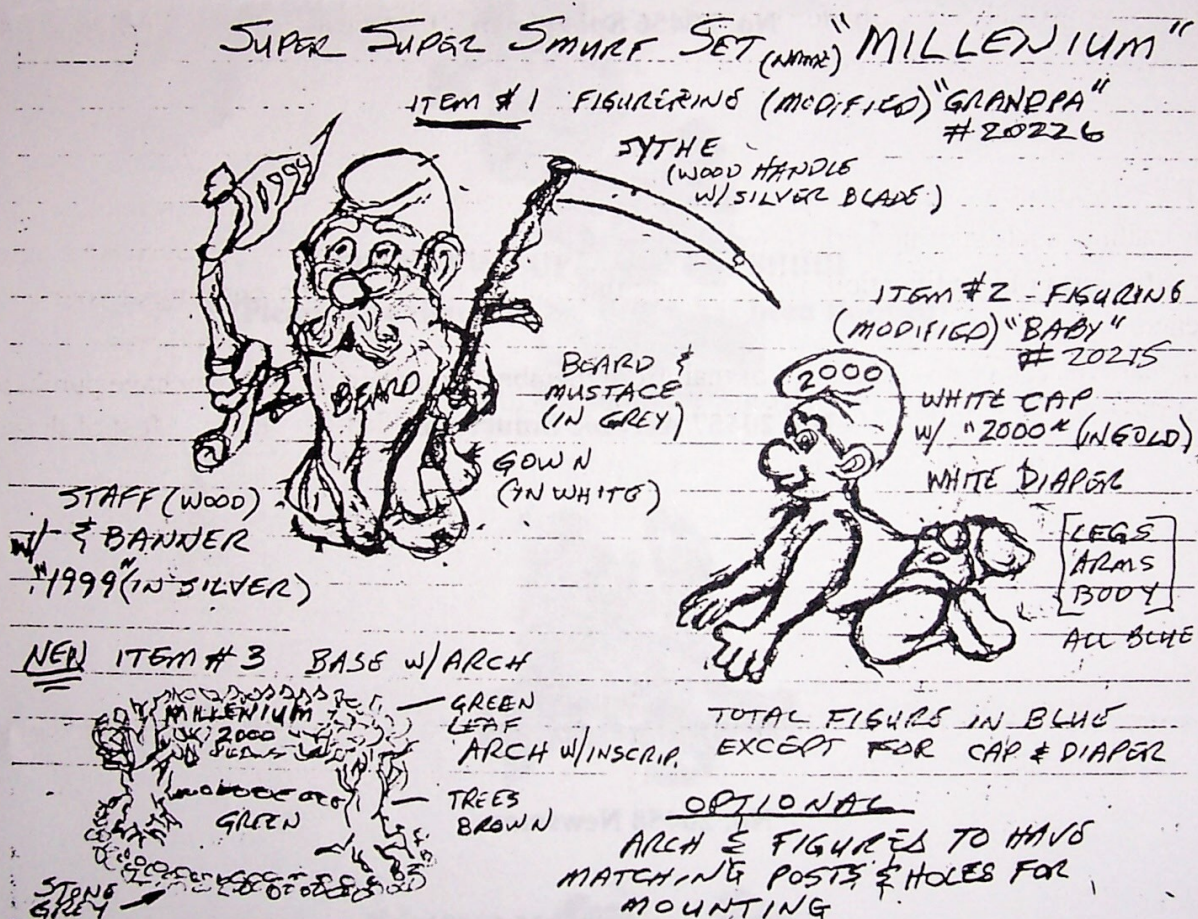 SUPER SUPER SMURF SET (NAME) "MILLENIUM"
ITEM #1 FIGURERING (MODIFIED) "GRANDPA"
#20226
SYTHE
(WOOD HANDLE
W/SILVER BLADE)
1999
BEARD
BEARD &
MUSTACE
(IN GREY)
GOWN
(IN WHITE)
STAFF (WOOD)
W/ & BANNER
"1999" (IN SILVER)
ITEM #2 - FIGURING
(MODIFIED) "BABY"
#20215
2000
WHITE CAP
W/ "2000" (IN GOLD)
WHITE DIAPER
[LEGS
ARMS
BODY]
ALL BLUE
TOTAL FIGURE IN BLUE
EXCEPT FOR CAP & DIAPER
NEW ITEM #3 BASE W/ARCH
MILLENIUM
2000
GREEN
LEAF
ARCH W/INSCRIP.
TREES
BROWN
GREEN
STONE
GREY
OPTIONAL
ARCH & FIGURES TO HAVE
MATCHING POSTS & HOLES FOR
MOUNTING